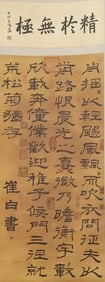 精於無極
舟搖〻以輕颺風飄〻而吹衣問征夫以
前路恨晨光之熹微乃瞻衡宇載
欣載奔僮僕歡迎稚子候門三徑就
荒松菊猶存
崔白書